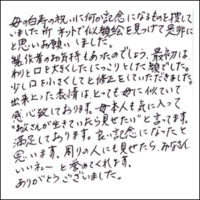 母の白寿の祝いに何か記念になるものを捜して
いました所 ネットで似顔絵を見つけて是非に
と思いお願いしました。
製作者のお気持もあったのでしょう、最初は
わりと口を大きくしたにこっりとした顔でした。
少し口を小さくしてと修正をしていただきました。
出来上った表情は とっても母に似ていて
感心致しております。母本人も気に入って
"お父さんが生きていたら見せたい"と言ってます。
満足しております。良い記念になったと
思います。周りの人にも見せたら、みなさん
いいネーと誉めてくれます。
ありがとうございました。